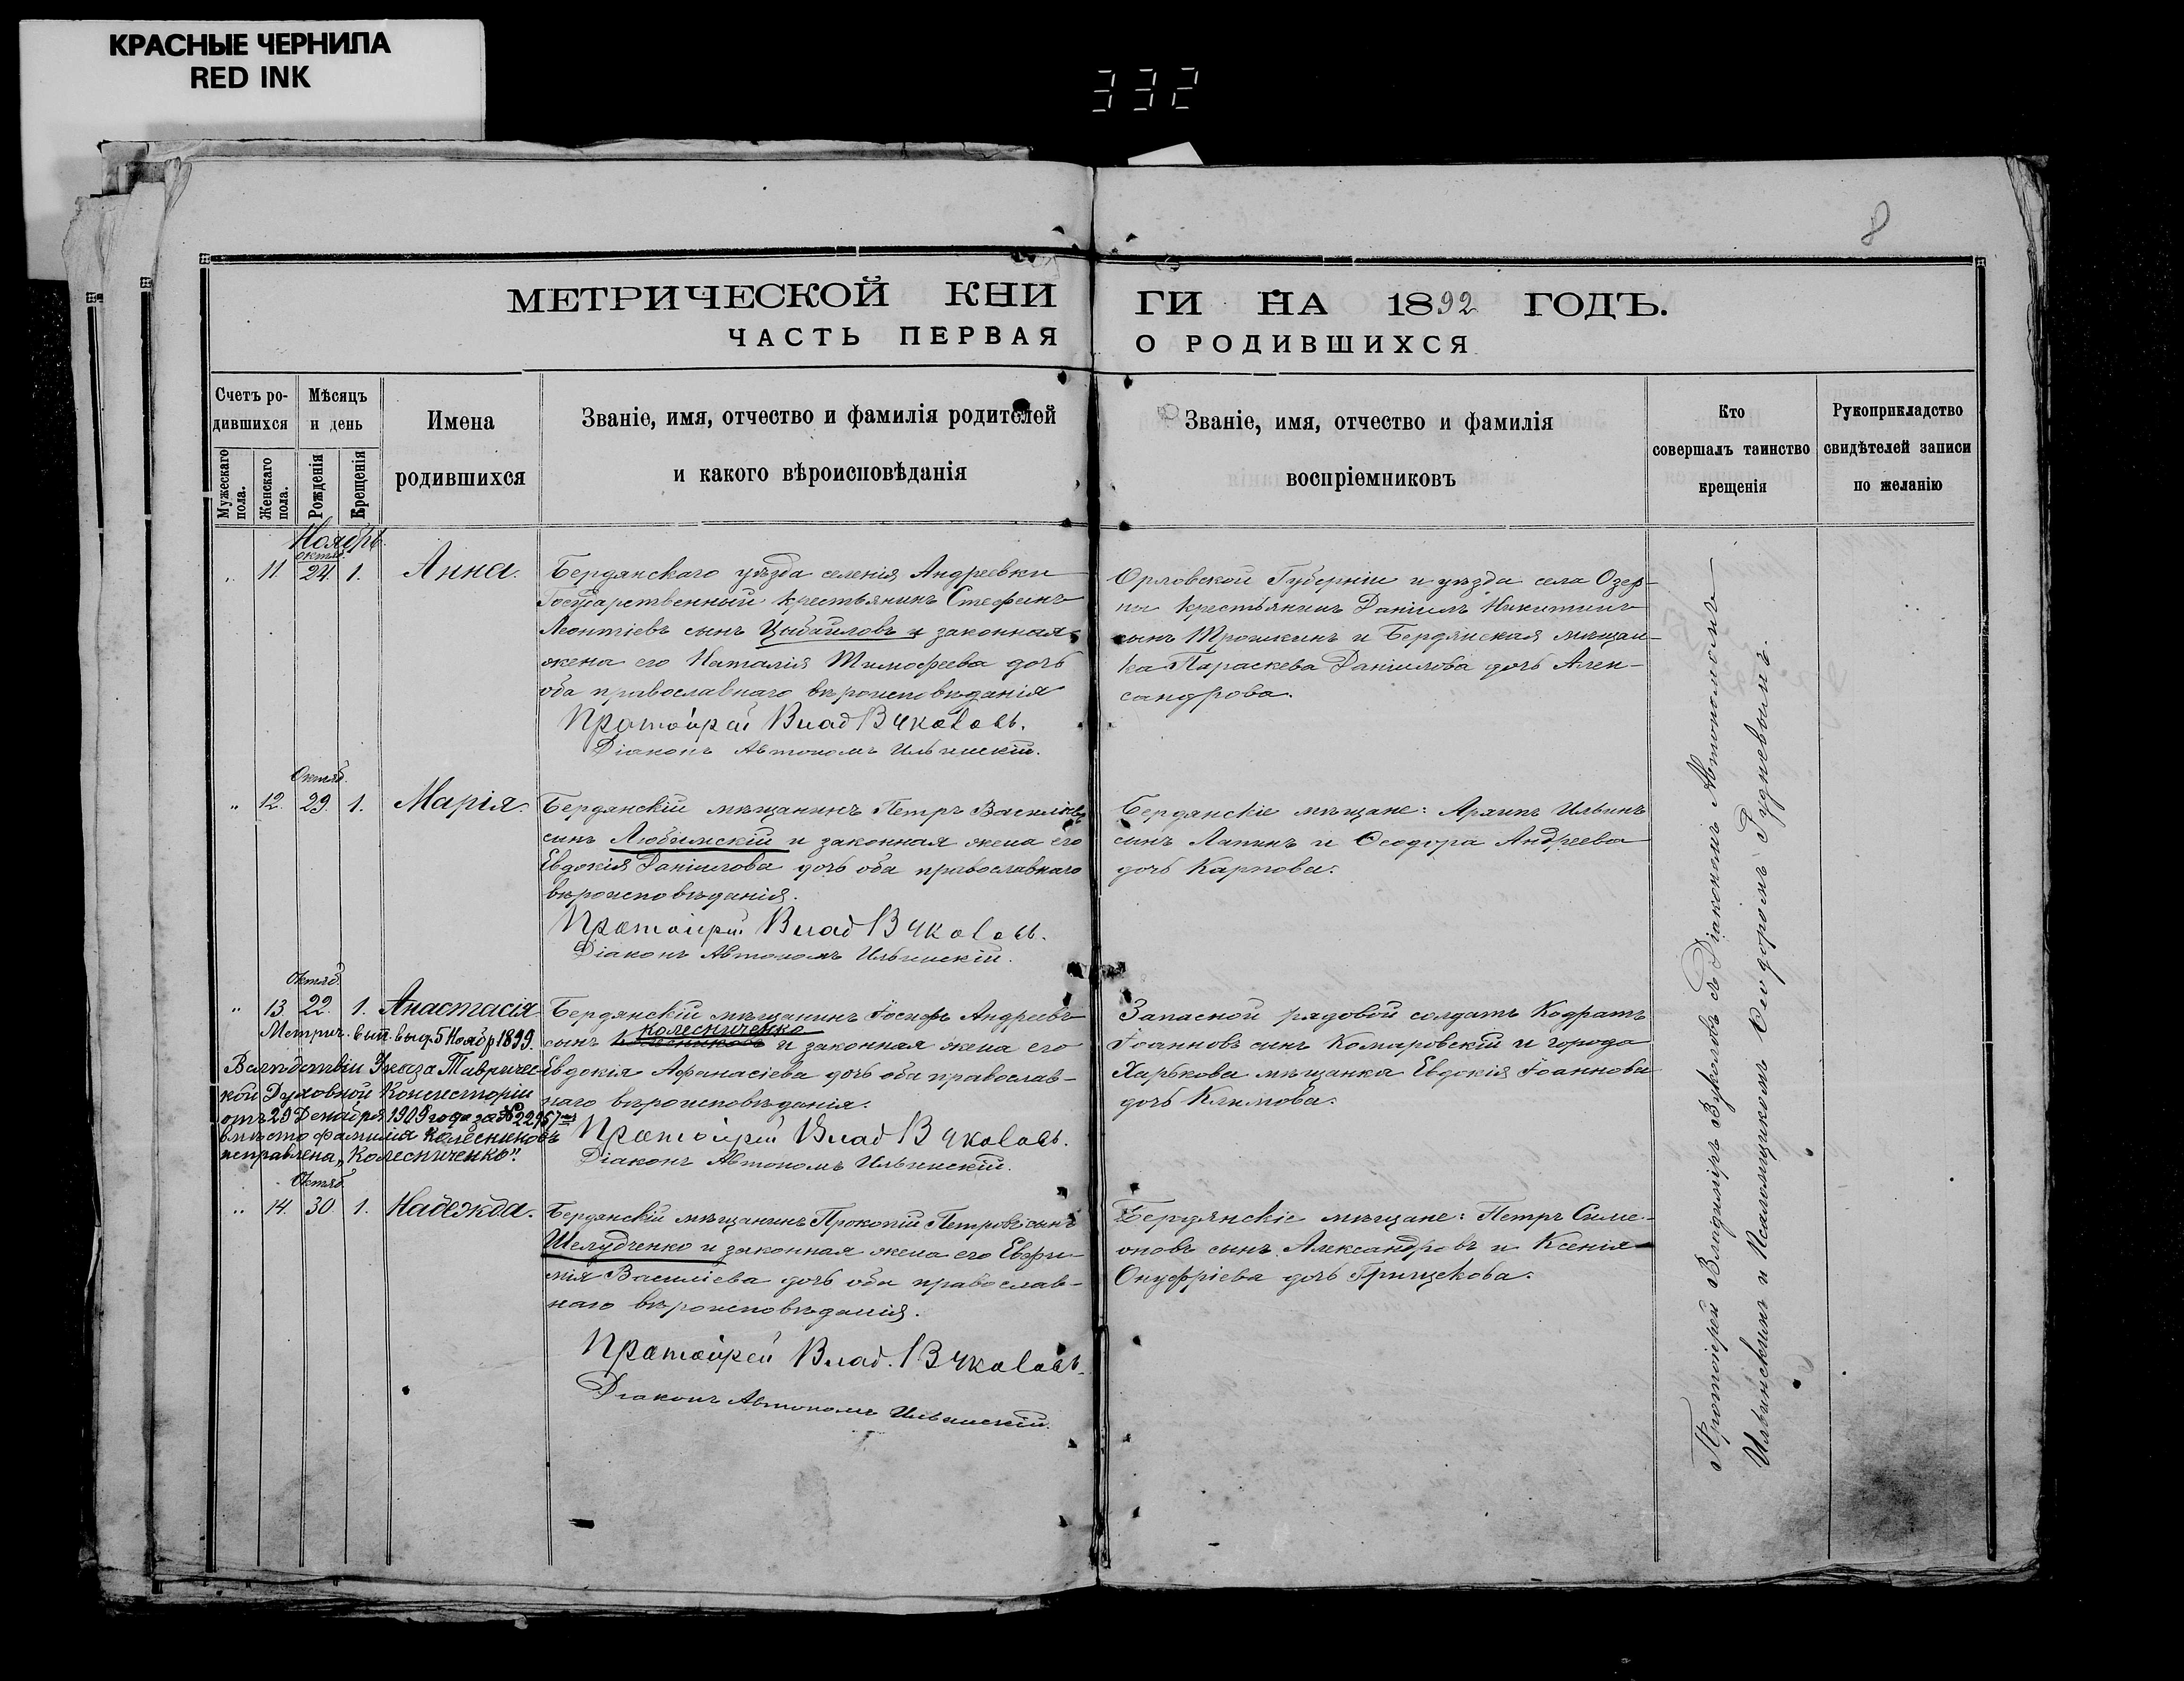 КРАСНЫЕ ЧЕРНИЛА
RED INK
332
8
МЕТРИЧЕСКОЙ КНИ
ГИ НА 1892 ГОДЪ.
ЧАСТЬ ПЕРВАЯ
О РОДИВШИХСЯ
Счетъ ро-
дившихся
Мужескаго
пола.
Женскаго
пола.
Мѣсяцъ
и день
Рожденія
Крещенія
Имена
родившихся
Званіе, имя, отчество и фамилія родителей
и какого вѣроисповѣданія
Званіе, имя, отчество и фамилія
воспріемниковъ
Кто
совершалъ таинство
крещенія
Рукоприкладство
свидѣтелей записи
по желанію
Ноябрь
октяб.
„ 11. 24. 1. Анна.
Бердянскаго уѣзда селенія Андреевки
Государственный крестьянинъ Стефанъ
Леонтіевъ сынъ Цыбайловъ и законная
жена его Наталія Тимофеева дочь
оба православнаго вѣроисповѣданія
Протоіерей Влад Вуколовъ.
Діаконъ Автономъ Ильинскій.
Орловской Губерніи и уѣзда села Озер-
ны крестьянинъ Даніилъ Никитинъ
сынъ Трошкинъ и Бердянская мѣщан-
ка Параскева Даніилова дочь Алек-
сандрова.
Октяб.
„ 12. 29. 1. Марія.
Бердянскій мѣщанинъ Петръ Василіевъ
сынъ Любимскій и законная жена его
Евдокія Даніилова дочь оба православнаго
вѣроисповѣданія.
Протоіерей Влад Вуколовъ.
Діаконъ Автономъ Ильинскій.
Бердянскіе мѣщане: Архипъ Ильинъ
сынъ Лапинъ и Ѳеодора Андреева
дочь Карпова.
Октяб.
„ 13. 22. 1. Анастасія.
Метрич. вып. выд. 5 Ноябр 1899.
Вслѣдствіи Указа Тавричес-
кой Духовной Консисторіи
отъ 29 Декабря 1909 года за № 22957
вмѣсто фамилія Колесниковъ
исправлена „Колесниченко".
Бердянскій мѣщанинъ Іосифъ Андреевъ
Колесниченко
сынъ Колесниковъ и законная жена его
Евдокія Афанасіева дочь оба православ-
наго вѣроисповѣданія.
Протоіерей Влад Вуколовъ.
Діаконъ Автономъ Ильинскій.
Запасной рядовой солдатъ Кодратъ
Іоанновъ сынъ Комаровскій и города
Харькова мѣщанка Евдокія Іоаннова
дочь Климова.
Октяб.
„ 14. 30. 1. Надежда.
Бердянскій мѣщанинъ Прокопій Петровъ сынъ
Шелудченко и законная жена его Евфи-
мія Василіева дочь оба православ-
наго вѣроисповѣданія.
Протоіерей Влад. Вуколовъ.
Діаконъ Автономъ Ильинскій.
Бердянскіе мѣщане: Петръ Симе-
оновъ сынъ Александровъ и Ксенія
Онуфріева дочь Грищекова.
Протоіерей Владиміръ Вуколовъ съ Діакономъ Автономомъ
Ильинскимъ и Псаломщикомъ Ѳеодоромъ Рудневымъ.